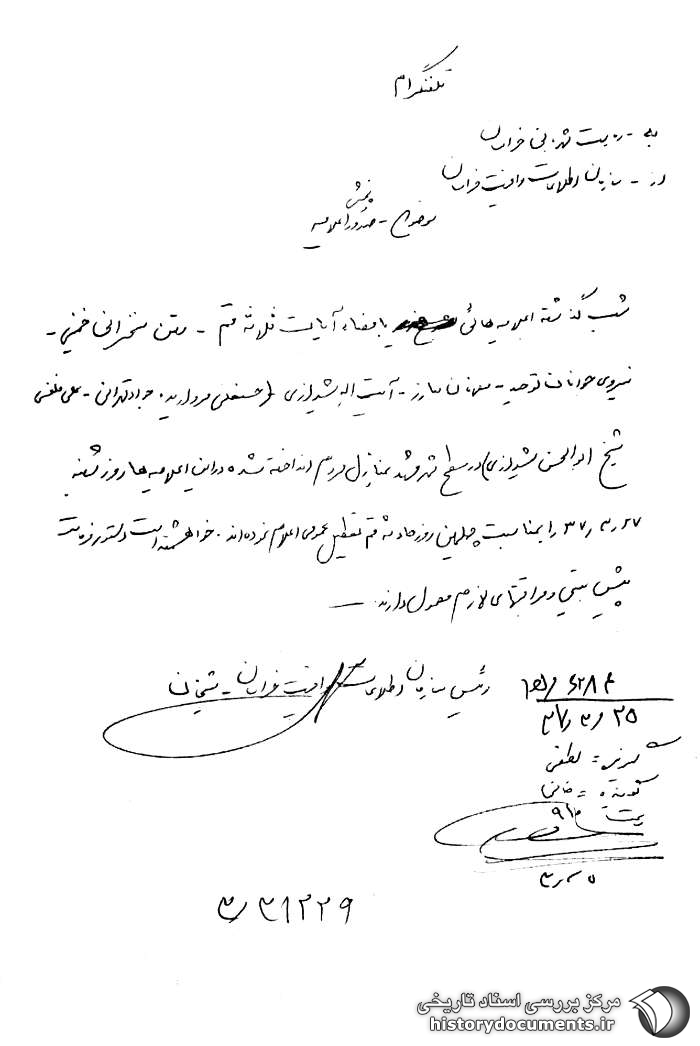 تلفنگرام
به - ریاست شهربانی خراسان
از - سازمان اطلاعات و امنیت خراسان
موضوع - صدور اعلامیه
پخش
شب گذشته اعلامیه هائی با مضاء آیات ثلاثه قم - متن سخنرانی خمینی -
نیروی جوانان توحید - مسلمانان مبارز - آیت اله شیرازی (حسنعلی مروارید. جواد تهرانی - علی فلسفی
شیخ ابوالحسن شیرازی) در سطح شهر مشهد بمنازل مردم انداخته شده در این اعلامیه ها روز شنبه
۲۷ر۳ر۳۷ را بمناسبت چهلمین روز حادثه قم تعطیل عمومی اعلام نموده اند. خواهشمند است دستور فرمائید
پیش بینی و مراقبتهای لازم معمول دارند. —
رئیس سازمان اطلاعات و امنیت خراسان - شیخان
۲۵ر۳ر۳۷
گیرنده = لطفی
گوینده =
ساعت
مرکز بررسی اسناد تاریخی
historydocuments.ir